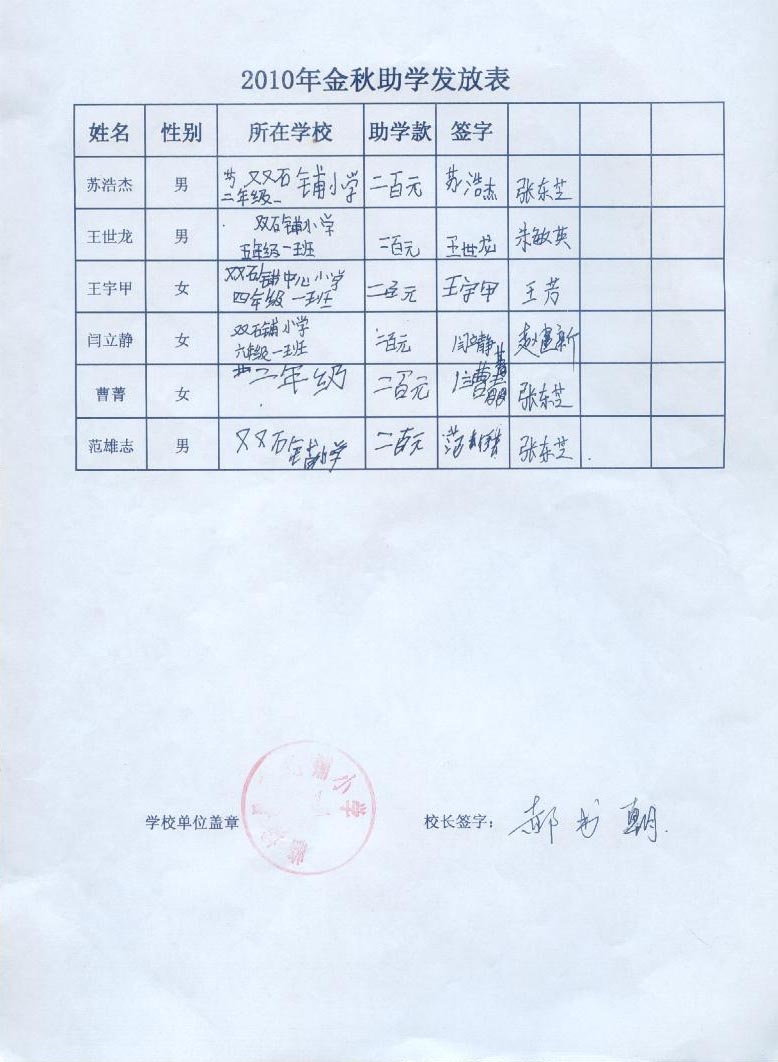 2010年金秋助学发放表
姓名 性别 所在学校 助学款 签字
苏浩杰 男 双双石铺小学 二百元 苏浩杰 张东芝
二年级一
王世龙 男 双石铺小学 二百元 王世龙 朱敏英
五年级一班
王宇甲 女 双石铺中心小学 二百元 王宇甲 王芳
四年级一班
闫立静 女 双石铺小学 二百元 闫立静 赵建新
六年级一班
曹菁 女 二年级 二百元 曹菁 张东芝
范雄志 男 双双石铺小学 二百元 范雄志 张东芝
小学
学校单位盖章 校长签字：郝